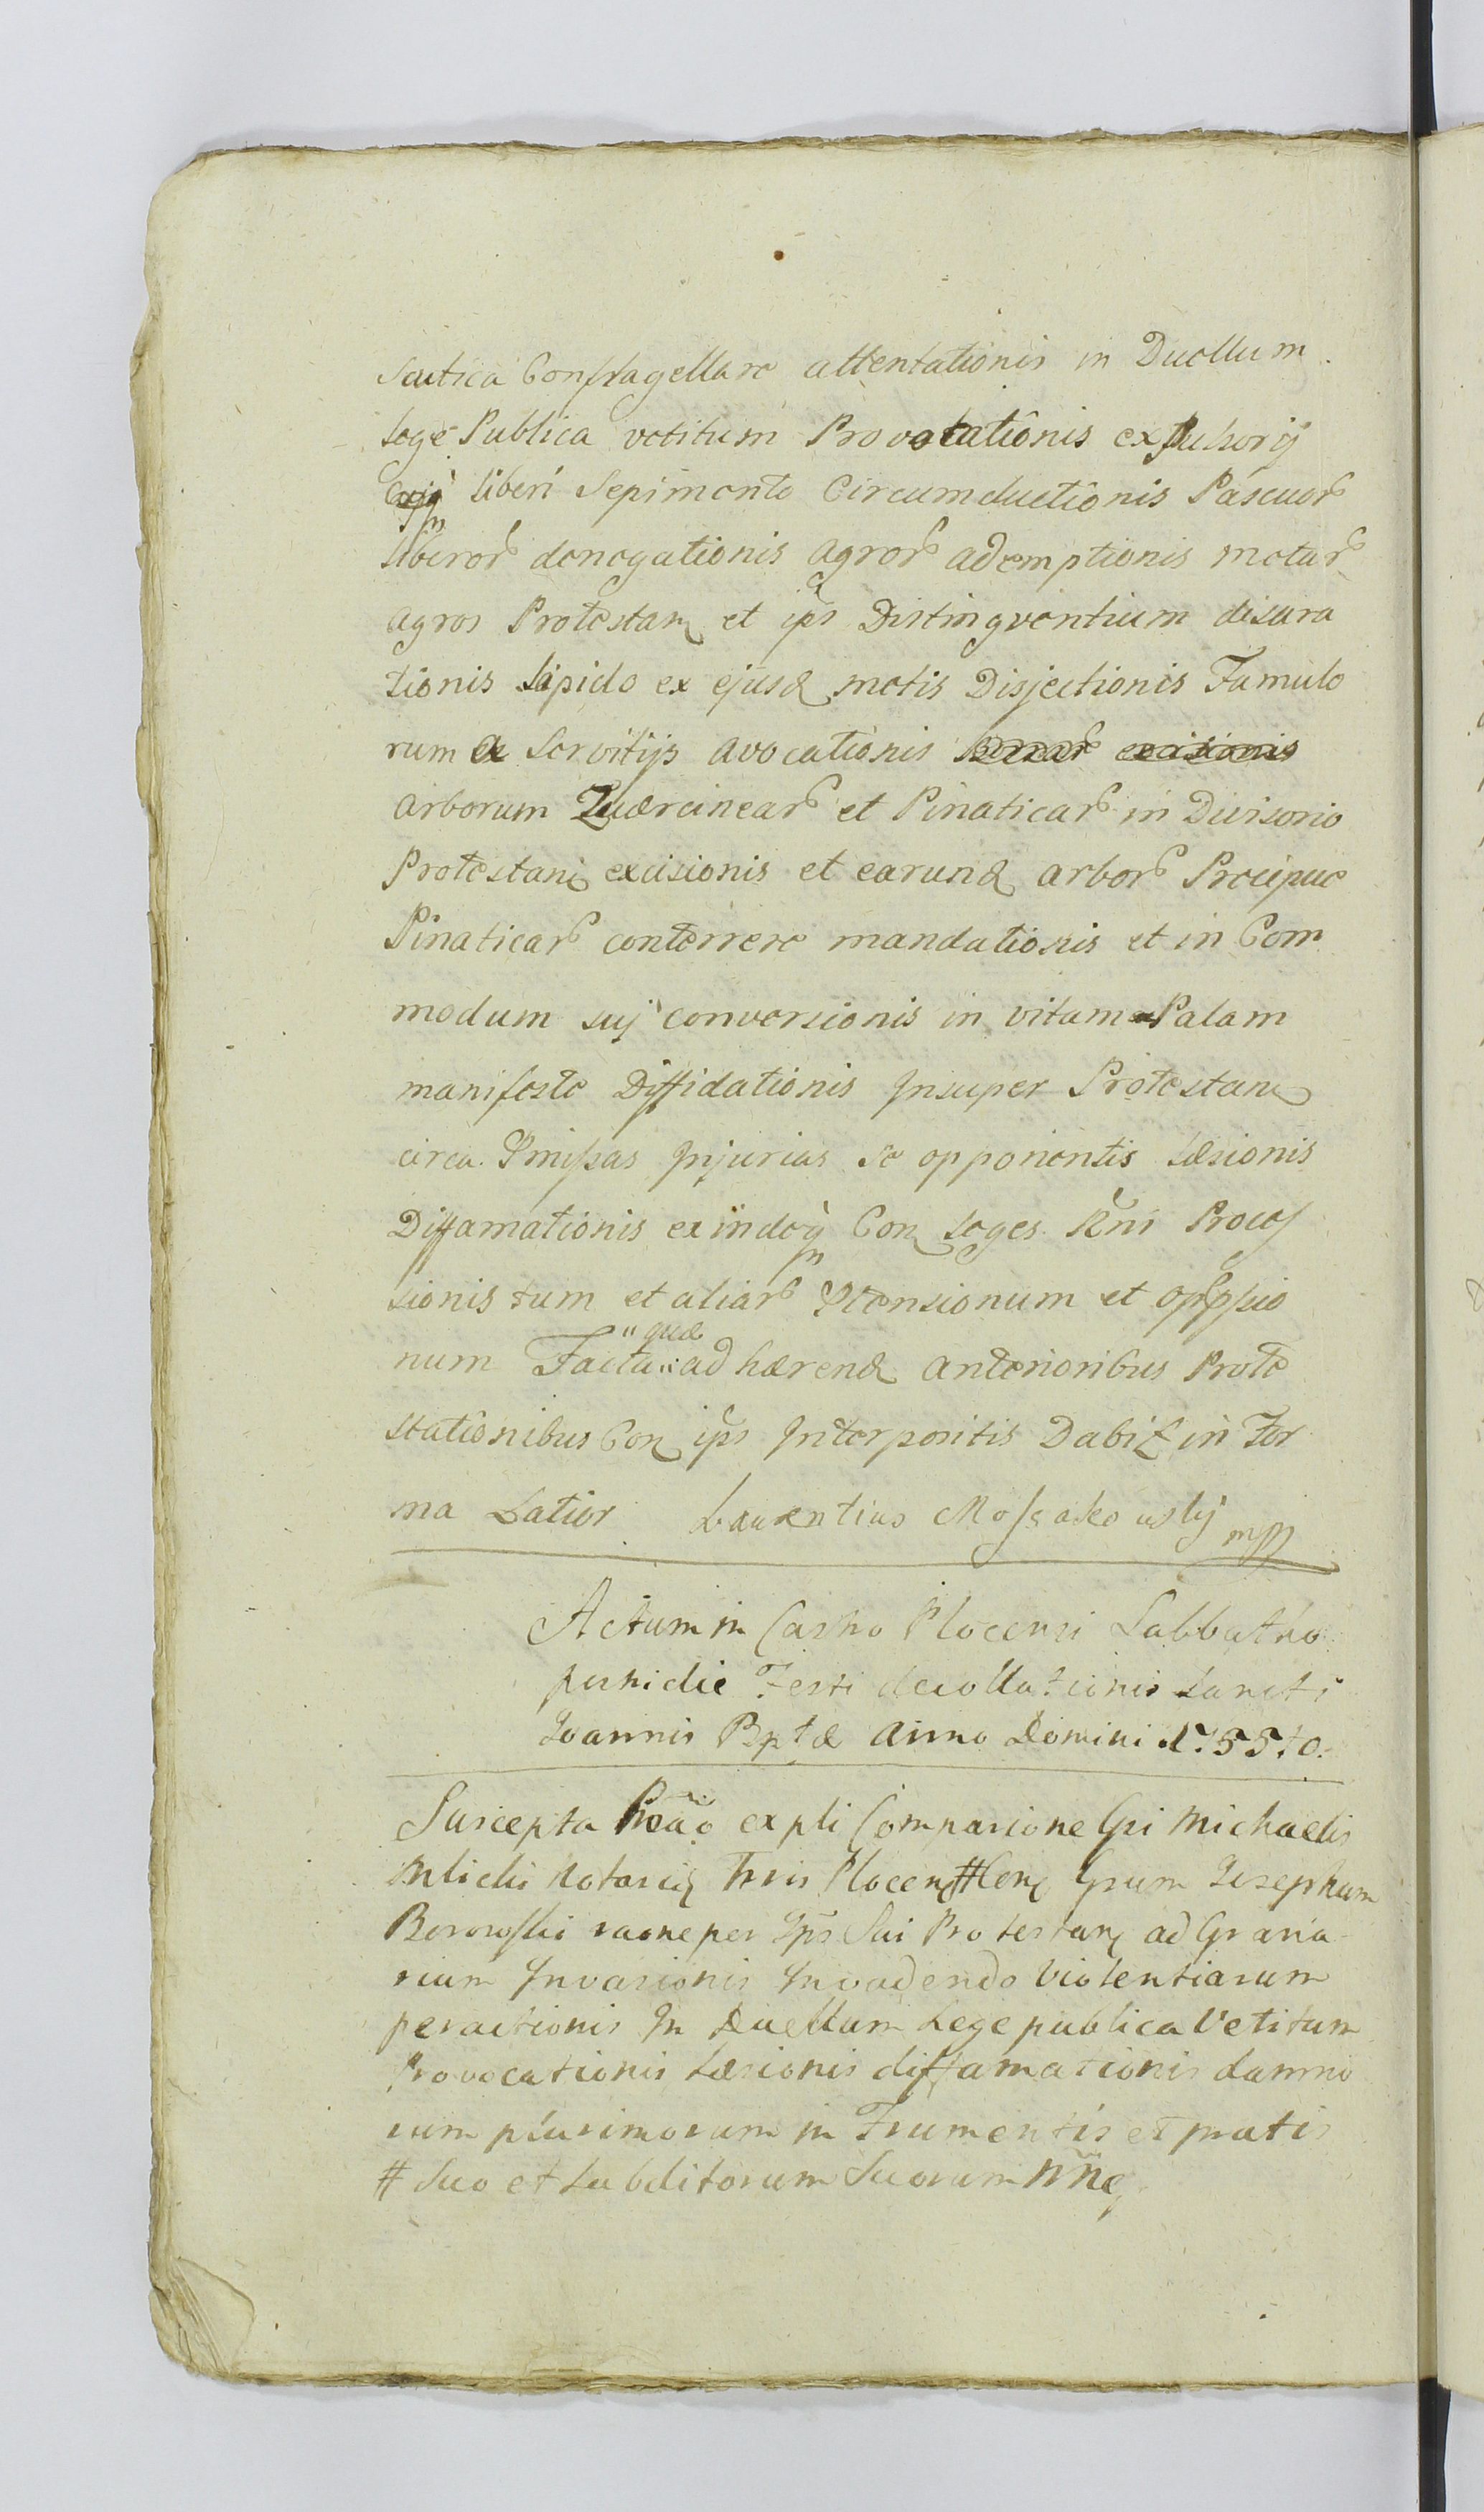 Scutica Conflagellare attentationis in Duellum
Lege Publica vetitum Provocationis expulsorij
liberi Sepimento Circumductionis Pascuor
liberor denegationis agror ademptionis metar
agros Protestan et ips Distingventium disara
tionis Lapide ex ejusd metis Disjectionis Famulo
rum a Servitijs avocationis
arborum Quercinear et Pinaticar in Divisorio
Protestani excisionis et earund arbor Precipue
Pinaticar conterrere mandationis et in Com
modum suj conversionis in vitam Palam
manifeste Diffidationis Insuper Protestane
circa Pmissas Injurias se opponentis Læsionis
Diffamationis exindeq Con Leges Rni Proces
sionis tum et aliar Ptensionum et oppssio
num Facta "quæ ad hærend anterioribus Prote
stationibus Con ips Interpositis Dabit in For
ma Latior Laurentius Mossakowskij mpp
Actum in Castro Plocensi Sabbatho
pridie Festi decollationis Sancti
Joannis Bptæ Anno Domini 1755to.
Suscepta Ptõ expli Comparicione Gsi Michaelis
Mlicki Notarii Trris Plocen # Con Gsum Josephum
Borowski raone per Ips Sui Protestan ad Grana
rium Invasionis Invadendo Violentiarum
peractionis In Duellum Lege publica Vetitum
Provocationis Læsionis diffamationis damno
rum plurimorum in Frumentis et pratis
# Suo et Subditorum Suorum Nne